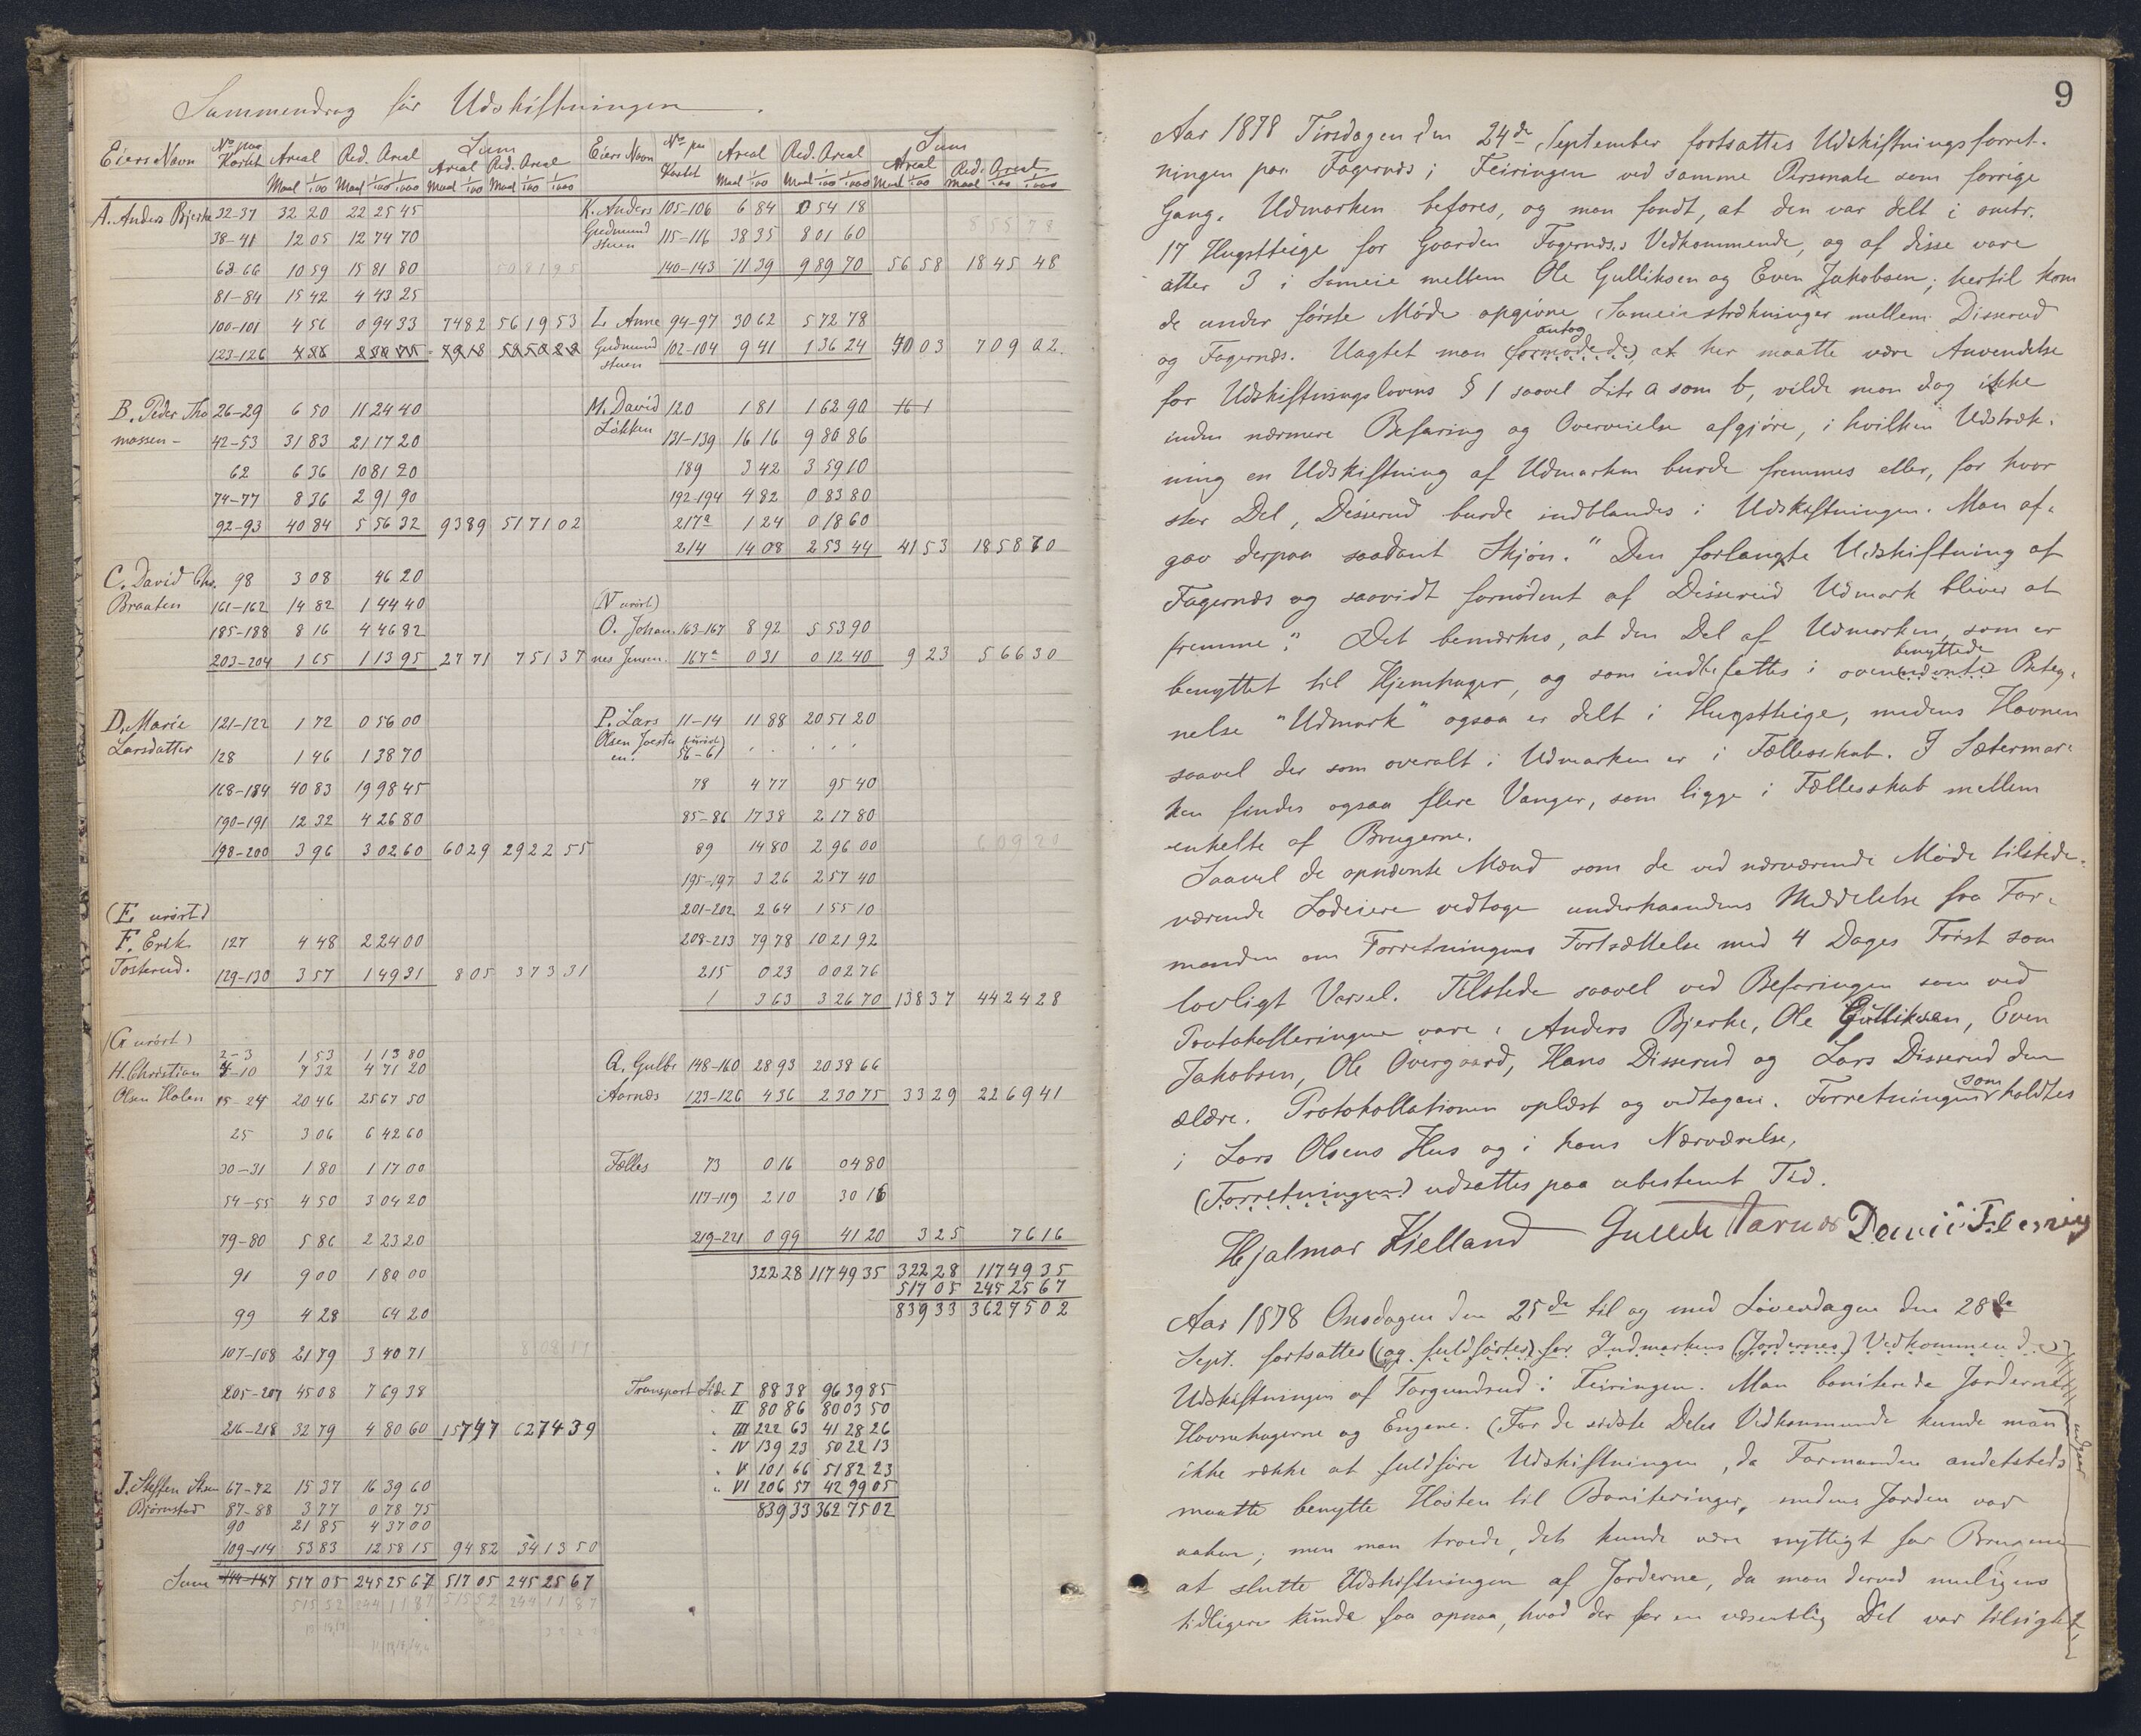 Sammendrag før Udskiftningen.
Eiers Navn No paa Kartet Areal Red. Areal Sum Areal Red. Areal
Maal 1/100 Maal 1/100 1/1000 Maal 1/100 Maal 1/100 1/1000
A. Anders Bjerke 32-37 32 20 22 25 45
38-41 12 05 12 74 70
63-66 10 59 15 81 80
81-84 15 42 4 43 25
100-101 4 56 0 94 33 74 82 56 19 53
123-126
B. Peder Tho 26-29 6 50 11 24 40
massen - 42-53 31 83 21 17 20
62 6 36 10 81 20
74-77 8 36 2 91 90
92-93 40 84 5 56 32 93 89 51 71 02
C. David Chr. 98 3 08 46 20
Braaten 161-162 14 82 1 44 40
185-188 8 16 4 46 82
203-204 1 65 1 13 95 27 71 7 51 37
D. Marie 121-122 1 72 0 56 00
Larsdatter 128 1 46 1 38 70
168-184 40 83 19 98 45
190-191 12 32 4 26 80
198-200 3 96 3 02 60 60 29 29 22 55
(E. urørt)
F. Erik 127 4 48 2 24 00
Tosterud. 129-130 3 57 1 49 31 8 05 3 73 31
(G urørt)
2-3 1 53 1 13 80
H. Christian 4-10 7 32 4 71 20
Olsen Holen 15-24 20 46 25 67 50
25 3 06 6 42 60
30-31 1 80 1 17 00
54-55 4 50 3 04 20
79-80 5 86 2 23 20
91 9 00 1 80 00
99 4 28 64 20
107-108 21 79 3 40 71
205-207 45 08 7 69 38
216-218 32 79 4 80 60 157 97 62 74 39
J. Steffen 67-72 15 37 16 39 60
Bjørnstad 87-88 3 77 0 78 75
90 21 85 4 37 00
109-114 53 83 12 58 15 94 82 34 13 50
Sum 144-147 517 05 245 25 67 517 05 245 25 67
Eiers Navn No paa Kartet Areal Red. Areal Sum Areal Red. Areal
Maal 1/100 Maal 1/100 1/1000 Maal 1/100 Maal 1/100 1/1000
K. Anders 105-106 6 84 0 54 18
Gudmund
stuen 115-116 38 35 8 01 60
140-143 11 39 9 89 70 56 58 18 45 48
L. Anne 94-97 30 62 5 72 78
Gudmund 102-104 9 41 1 36 24 40 03 7 09 02
stuen
M. David 120 1 81 1 62 90
Løkken 131-139 16 16 9 80 86
189 3 42 3 59 10
192-194 4 82 0 83 80
217a 1 24 0 18 60
214 14 08 2 53 44 41 53 18 58 70
(N urørt)
O. Johan 163-167 8 92 5 53 90
nes Jensen. 167a 0 31 0 12 40 9 23 5 66 30
P. Lars 11-14 11 88 20 51 20
Olsen (urørt) 56-61
78 4 77 95 40
85-86 17 38 2 17 80
89 14 80 2 96 00
195-197 3 26 2 57 40
201-202 2 64 1 55 10
208-213 79 78 10 21 92
215 0 23 0 02 76
1 3 63 3 26 70 138 37 44 24 28
Q. Gulbr 148-160 28 93 20 38 66
Aarnæs 123-126 4 36 2 30 75 33 29 22 69 41
Fælles 73 0 16 04 80
117-119 2 10 30 16
219-221 0 99 41 20 3 25 76 16
322 28 117 49 35 322 28 117 49 35
517 05 245 25 67
839 33 362 75 02
Transport Side I 88 38 96 39 85
II 80 86 80 03 50
III 222 63 41 28 26
IV 139 23 50 22 13
V 101 66 51 82 23
VI 206 57 42 99 05
839 33 362 75 02
9
Aar 1878 Tirsdagen den 24de September fortsattes Udskiftningsforret-
ningen paa Fagernæs i Feiringen ved samme Personale som forrige
Gang. Udmarken befores, og man fandt, at den var delt i omtr.
17 Hugstteige for Gaarden Fagernæs's Vedkommende, og af disse vare
atter 3 i Sameie mellem Ole Gulliksen og Even Jakobsen; hertil kom
de under første Møde opgivne Sameiestrækninger mellem Disserud
og Fagernæs. Uagtet man (formodede) antog at her maatte være Anvendelse
for Udskiftningslovens § 1 saavel Litr a som b, vilde man dog ikke
inden nærmere Befaring og Overveielse afgjøre, i hvilken Udstræk-
ning en Udskiftning af Udmarken burde fremmes eller, for hvor
stor Del, Disserud burde indblandes i Udskiftningen. Man af-
gav derpaa saadant Skjøn: "Den forlangte Udskiftning af
Fagernæs og saavidt fornødent af Disserud Udmark bliver at
fremme". Det bemærkes, at den Del af Udmarken, som er
benyttet til Hjemhager, og som indbefattes i oven(nævnte) benyttede Beteg-
nelse "Udmark" ogsaa er delt i Hugstteige, medens Havnen
saavel der som overalt i Udmarken er i Fællesskab. I Sætermar-
ken findes ogsaa flere Vanger, som ligge i Fællesskab mellem
enkelte af Brugerne.
Saavel de opnævnte Mænd som de ved nærværende Møde tilstede-
værende Lodeiere vedtoge underhaandens Meddelelse fra For-
manden om Forretningens Fortsættelse med 4 Dages Frist som
lovligt Varsel. Tilstede saavel ved Befaringen som ved
Protokolleringen vare: Anders Bjerke, Ole Gulliksen, Even
Jakobsen, Ole Overgaard, Hans Disserud og Lars Disserud den
ældre. Protokollationen oplæst og vedtagen. Forretningen som holdtes
i Lars Olsens Hus og i hans Nærværelse,
(Forretningen) udsattes paa ubestemt Tid.
Hjalmar Kielland Gulbr Aarnæs David
Aar 1878 Onsdagen den 25de til og med Løverdagen den 28de
Sept. fortsattes (og fuldførtes) for Indmarkens (Jordernes) Vedkommende
Udskiftningen af Torgundrud i Feiringen. Man boniterede Jorderne
Havnehagerne og Engene. (For de sidste Deles Vedkommende kunde man
ikke række at fuldføre Udskiftningen, da Formanden andetsteds
maatte benytte Høsten til Boniteringer, medens Jorden var
aaben; men man troede, det kunde være nyttigt for Brugerne
at slutte Udskiftningen af Jorderne, da man derved muligens
tidligere kunde faa opnaa, hvad der for en væsentlig Del var tilsigtet,
udgaar